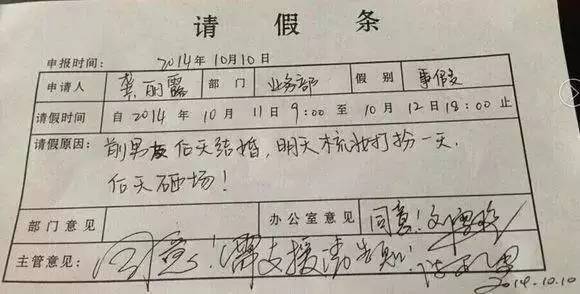 请 假 条
申报时间: 2014年10月10日
申请人 龚丽露 部 门 业务部 假 别 事假
请假时间 自2014年10月11日9:00至10月12日18:00止
请假原因: 前男友后天结婚,明天梳妆打扮一天,
后天砸场!
部门意见 办公室意见 同意!
主管意见: 同意!需支援请告知!
2014.10.10